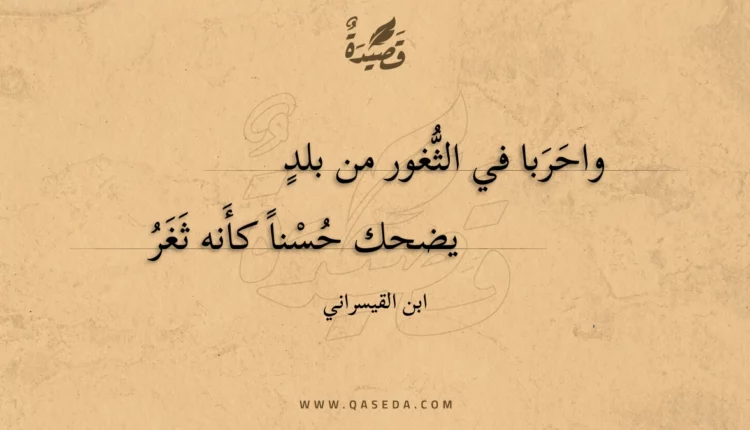 قَصِيْدَةٌ
واحَرَبا في الثُّغور من بلدٍ
يضحك حُسْناً كأَنه ثَغَرُ
ابن القيسراني
WWW.QASEDA.COM